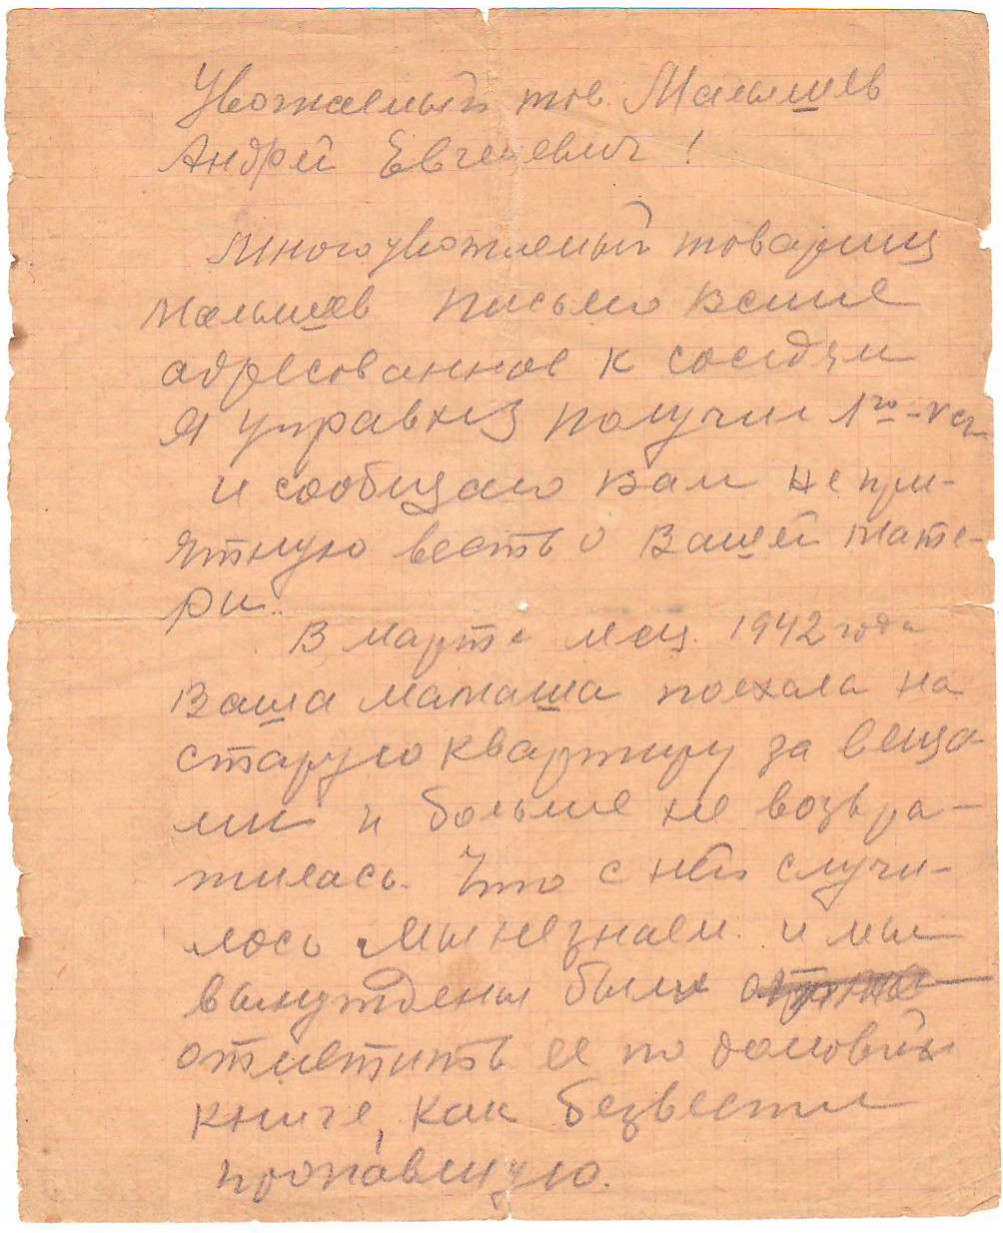 Уважаемый тов. Малышев
Андрей Евгеневич!
Многоуважаемый товарищ
Малышев письмо Ваше
адресованное к соседям
Я управхоз получил 1го
и сообщаю Вам непри-
ятную весть о Вашей мате-
ри.
В марте мец. 1942 года
Ваша мамаша поехала на
старую квартиру за веща-
ми и больше не возвра-
тилась. Что с ней случи-
лось мы незнаем. и мы
вынуждены были
отметить ее по домовой
книге, как безвести
пропавшую.